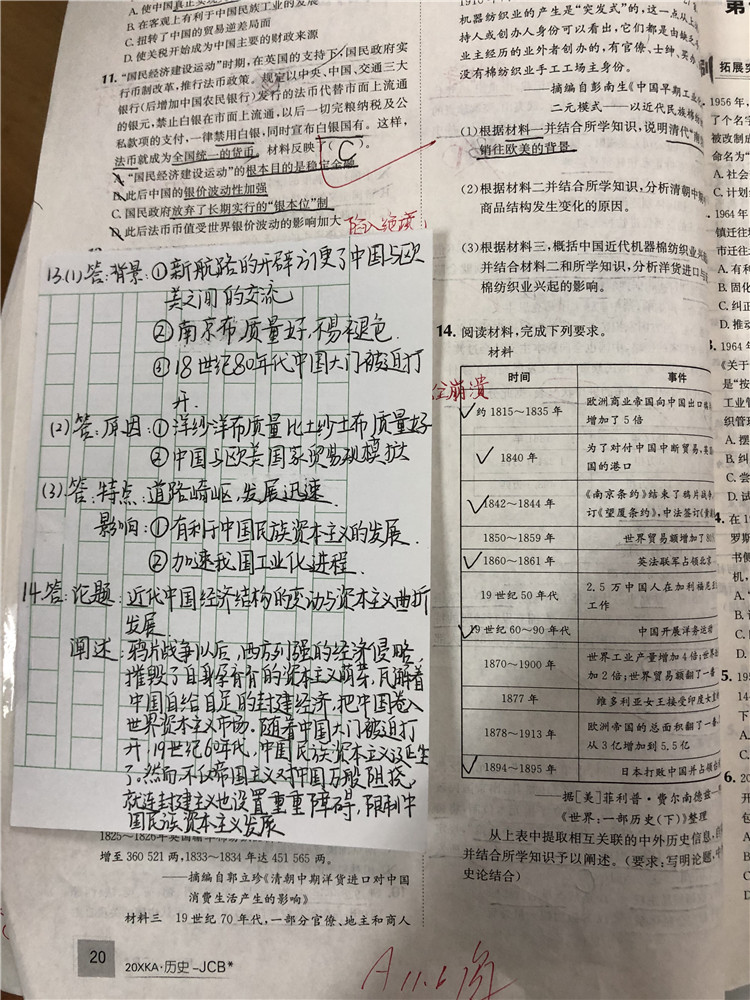 A. 使中国真正实现
B. 在客观上有利于中国民族工业的发展
C. 扭转了中国的贸易逆差局面
D. 使关税开始成为中国主要的财政来源
11. “国民经济建设运动”时期,在英国的支持下,国民政府实
行币制改革,推行法币政策。规定以中央、中国、交通三大
银行(后增加中国农民银行)发行的法币代替市面上流通
的银元,禁止白银在市面上流通,以后一切完粮纳税及公
私款项的支付,一律禁用白银,同时宣布白银国有。这样,
法币就成为全国统一的货币。材料反映 ( C )
A. “国民经济建设运动”的根本目的是稳定金融
B. 此后中国的银价波动性加强
C. 国民政府放弃了长期实行的“银本位”制
D. 此后法币币值受世界银价波动的影响加大
13.(1)答:背景:①新航路的开辟方便了中国与欧
美之间的交流
②南京布质量好,不易褪色.
③18世纪80年代中国大门被迫打
开.
(2)答:原因:①洋纱洋布质量比土纱土布质量好
②中国与欧美国家贸易规模扩
(3)答:特点:道路崎岖,发展迅速.
影响:①有利于中国民族资本主义的发展.
②加速我国工业化进程.
14.答:论题:近代中国经济结构的变动与资本主义曲折
发展
阐述:鸦片战争以后,西方列强的经济侵略,
摧毁了自身孕育的资本主义萌芽,瓦解着
中国自给自足的封建经济,把中国卷入
世界资本主义市场.随着中国大门被迫打
开,19世纪60年代,中国民族资本主义诞生
了.然而不仅帝国主义对中国万般阻挠,
就连封建主义也设置重重障碍,限制中
国民族资本主义发展
增至 360 521 两,1833~1834 年达 451 565 两。
——摘编自郭立珍《清朝中期洋货进口对中国
消费生活产生的影响》
材料三 19 世纪 70 年代,一部分官僚、地主和商人
20
20XKA·历史-JCB*
机器纺织业的产生是“突发式”的,这一点从
持人或创办人身份可以看出,它们都是由缺乏
业主经历的业外者创办的,有官僚、士绅、买办
没有棉纺织业手工工场主身份。
——摘编自彭南生《中国早期工业化
二元模式——以近代民族棉纺
(1)根据材料一并结合所学知识,说明清代“南京
销往欧美的背景
(2)根据材料二并结合所学知识,分析清朝中期
商品结构发生变化的原因。
(3)根据材料三,概括中国近代机器棉纺织业兴
并结合材料二和所学知识,分析洋货进口与
棉纺织业兴起的影响。
14. 阅读材料,完成下列要求。
材料
时间 事件
约 1815~1835 年 欧洲商业帝国向中国出口
增加了 5 倍
1840 年 为了对付中国中断贸易,英
国的港口
1842~1844 年 《南京条约》结束了鸦片战争
订《望厦条约》,中法签订《黄
1850~1859 年 世界贸易额增加了
1860~1861 年 英法联军占领北京
19 世纪 50 年代 2.5 万中国人在加利福尼
工作
19 世纪 60~90 年代 中国开展洋务运动
1870~1900 年 世界工业产量增加 4 倍;世界
加 2 倍;世界贸易额翻了一
1877 年 维多利亚女王接受印度女
1878~1913 年 欧洲帝国的总面积翻了一
从 3 亿增加到 5.5 亿
1894~1895 年 日本打败中国并占领
——据[美]菲利普·费尔南德兹
《世界:一部历史(下)》整理
从上表中提取相互关联的中外历史信息,
并结合所学知识予以阐述。(要求:写明论题,
史论结合)
拓展
1956 年,
了个名字
被改制成
命名为“
A. 社会
C. 计划
1964 年
市迁往
A. 有利
B. 固化
C. 纠正
D. 推动